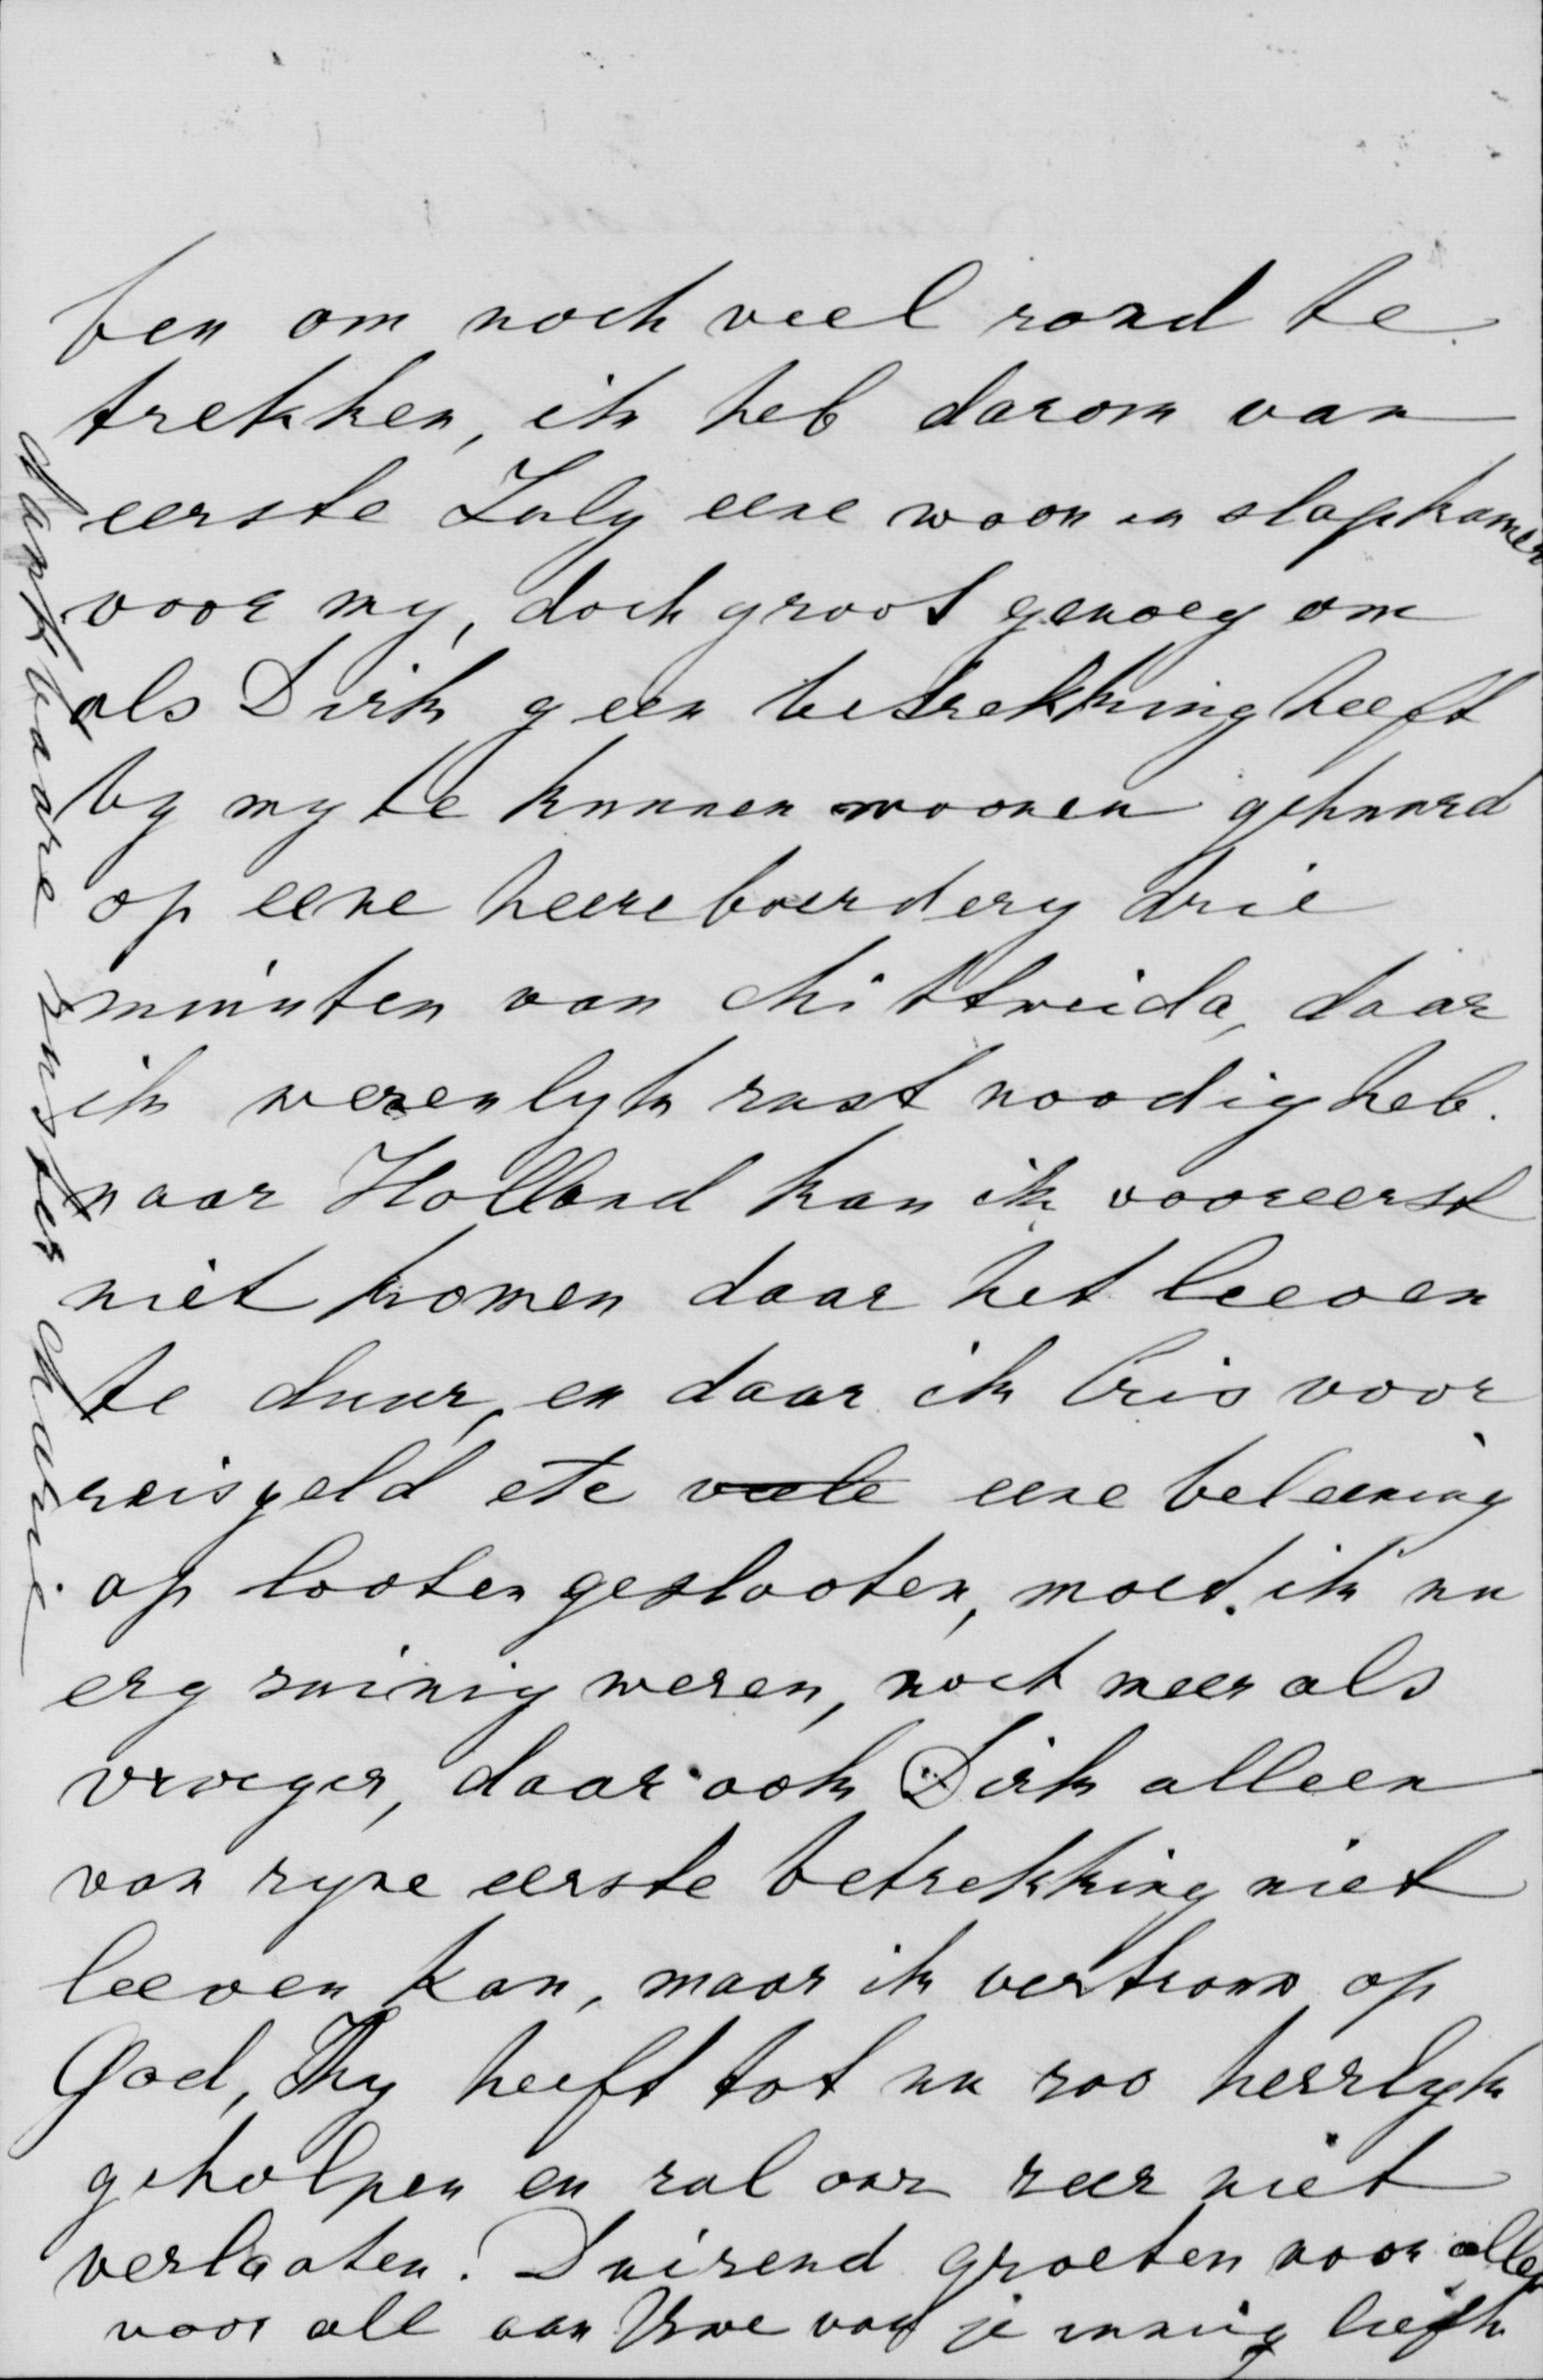 ben om noch veel rond te
trekken, ik heb darom van
eerste July eene woon en slapkamer
voor my, doch groot genoeg om
als Dirk geen betrekking heeft
by my te kunnen woonen gehuurd
op eene heereboerdery drie
minuten van Mittweida, daar
ik wezenlyk rust noodig heb.
naar Holland kan ik vooreerst
niet komen daar het leeven
te duur, en daar ik Cris voor
reisgeld etc veele eene beleening
op looten geslooten, moet ik nu
erg zuinig wezen, noch meer als
vroeger, daar ook Dirk alleen
van zyne eerste betrekking niet
leeven kan, maar ik vertrouw op
God, Hy heeft tot nu zoo heerlyk
geholpen en zal ons zeer niet
verlaaten. Duizend groeten voor alle,
voor all aan Uwe van je innig liefh
dankbaare zuster Marie